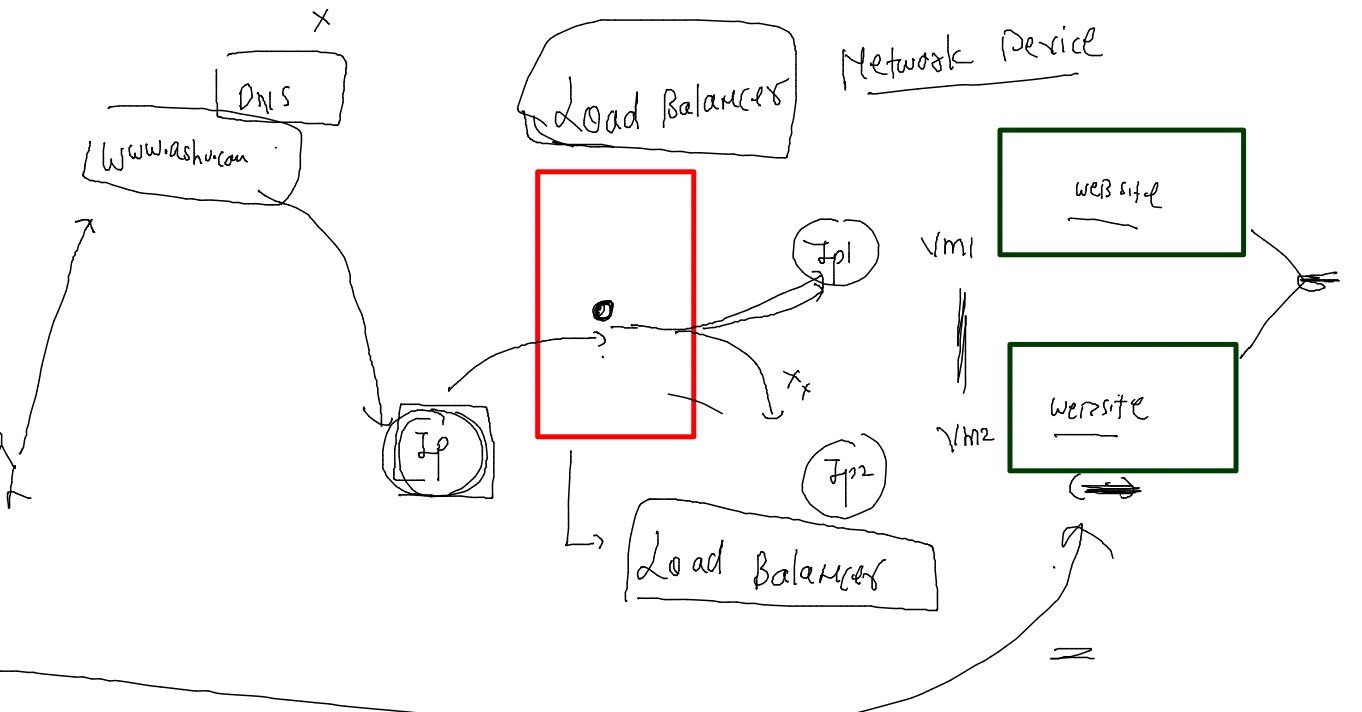 X
DNS
www.ashu.com
Load Balancer
Network Device
website
Ip1
Vm1
Ip
website
Vm2
Ip2
Load Balancer